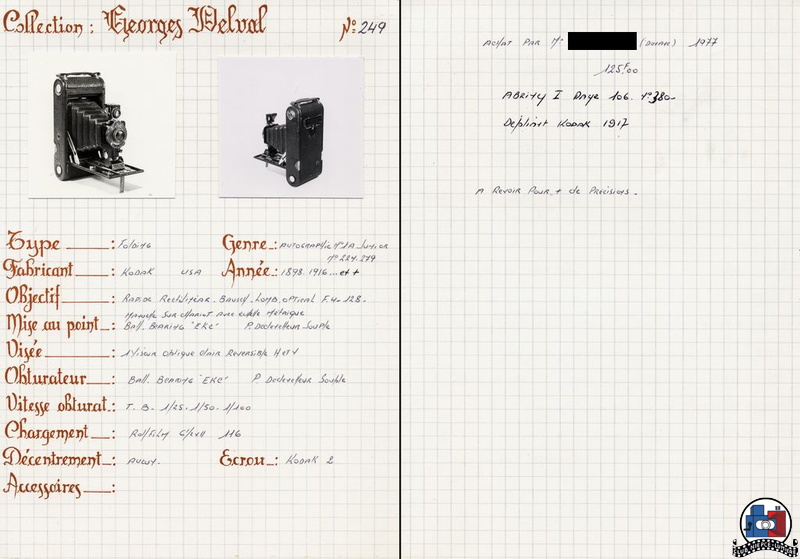 Collection : Georges Delval
N°: 249
Type : Folding
Genre : Autographic N°1A Junior
N° 224.279
Fabricant : Kodak USA
Année : 1898. 1916... et +
Objectif : Rapide Rectilinear. Bausch. Lomb. optical F.4-128.
Manuelle sur chariot avec échelle Métrique
Mise au point : Ball. Bearing "EKC" P. Declencheur Souple
Visée : Viseur oblique clair Reversible H et V
Obturateur : Ball. Bearing "EKC" P. Declencheur Souple
Vitesse obturat. : T. B. 1/25. 1/50. 1/100
Chargement : Rollfilm 116
Décentrement : Aucun.
Ecrou : Kodak 2
Accessoires :
Achat Par Mr (Douai) 1977
125F00
Page 106. N°380-
Kodak 1917
A Revoir Pour + de Précisions.